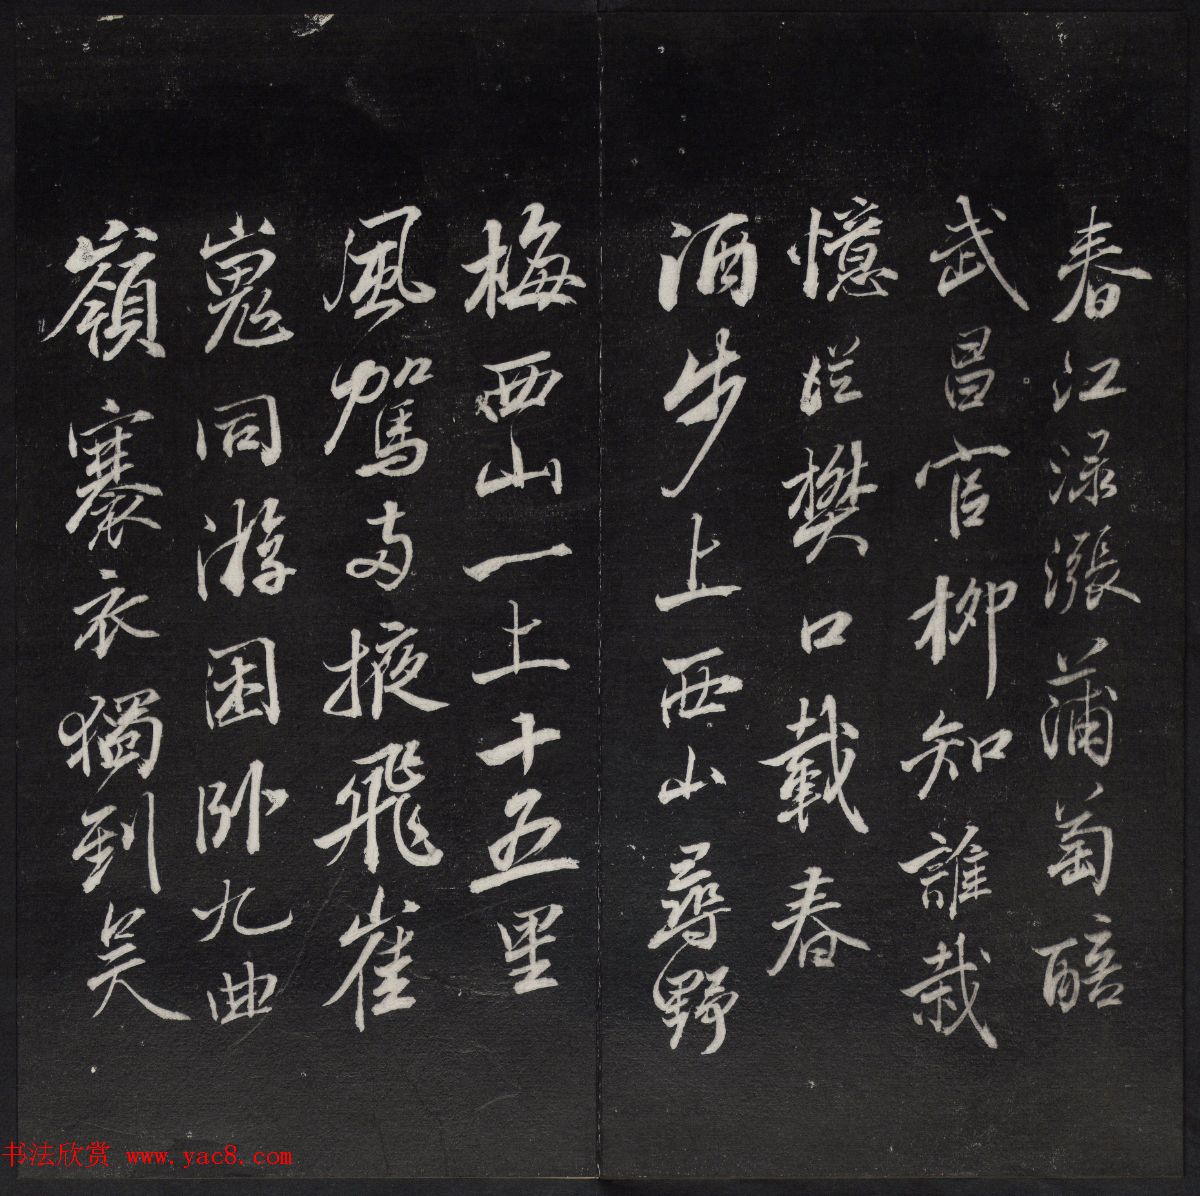 春江渌漲蒲萄醅
武昌官柳知誰栽
憶從樊口載春
酒步上西山尋野
梅西山一土十五里
風駕兩掖飛崔
嵬同游困卧九曲
嶺褰衣獨到吴
书法欣赏 www.yac8.com